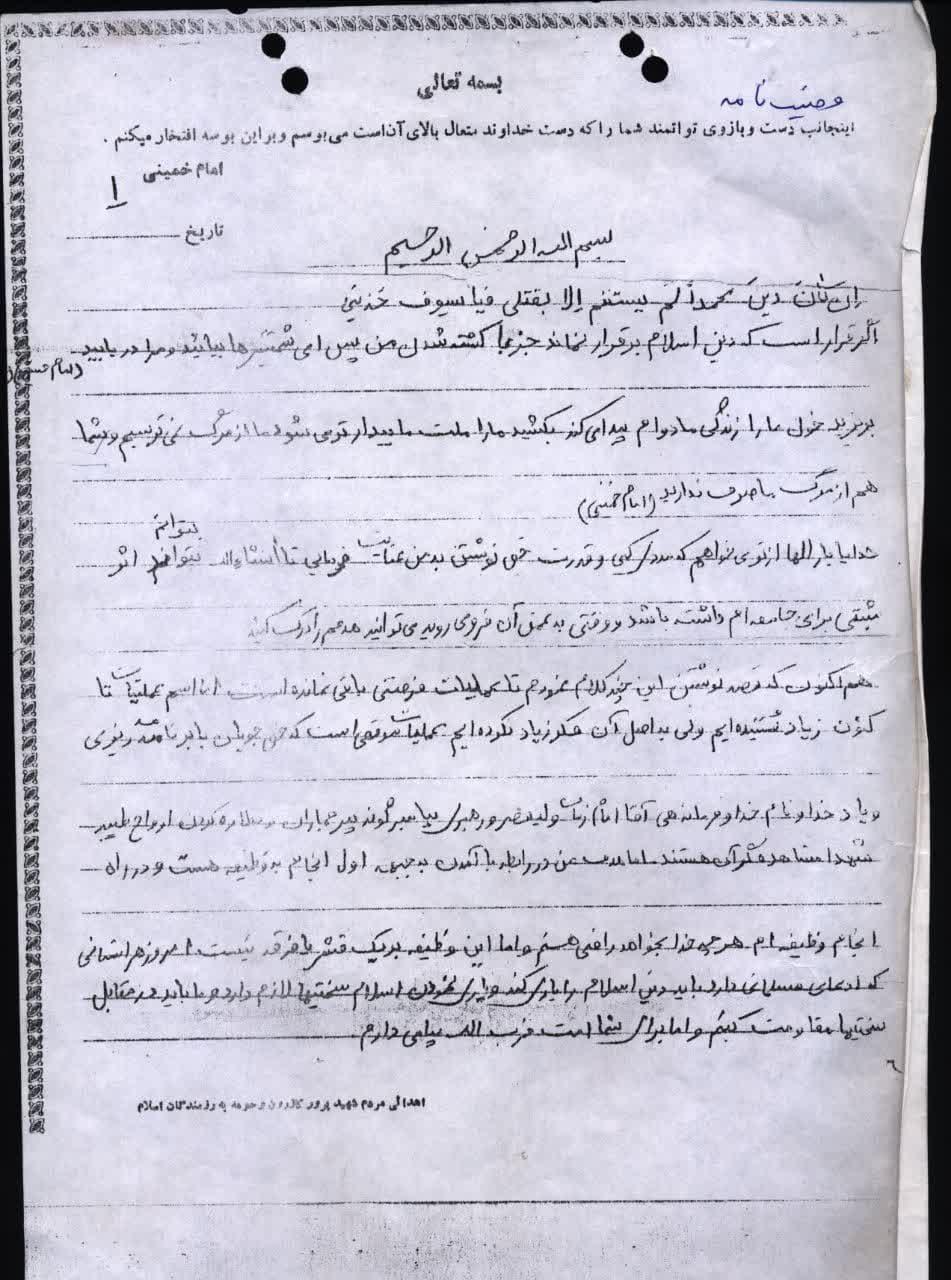 بسمه تعالی
وصیت نامه
اینجانب دست و بازوی توانمند شما را که دست خداوند متعال بالای آن است می بوسم و بر این بوسه افتخار میکنم .
امام خمینی
۱
تاریخ
بسم الله الرحمن الرحیم
ان کان دین محمداً لم یستقم الا بقتلی فیا سیوف خذینی
اگر قرار است که دین اسلام برقرار نماند جز با کشته شدن من پس ای شمشیرها بیائید و مرا دریابید
(امام حسین)
بریزید خون ما را زندگی ما دوام پیدا می کند بکشید ما را ملت ما بیدارتر می شود ما از مرگ نمی ترسیم و شما
هم از مرگ ما صرف ندارید (امام خمینی)
خدایا بار الها از تو می خواهم که مدد کنی و قدرت نوشتن به من عنایت فرمائی تا انشاءالله بتوانم اثر
مثبتی برای جامعه ام داشته باشد و وقتی به عمق آن فرو می روید می توانید هدفم را درک کنید
هم اکنون که قصد نوشتن این چند کلام نمودم تا عملیات فرصتی باقی نمانده است اما اسم عملیات تا
کنون زیاد شنیده ایم ولی به اصل آن فکر زیاد نکرده ایم عملیات موقعی است که جوانان با برنامه ریزی
و یاد خدا و نام خدا و فرماندهی آقا امام زمان و رهبری پیامبر گونه پیر جماران و ارواح طیبه
شهدا مشاهده گر آن هستند اما هدف من در رابطه با آمدن به جبهه اول انجام وظیفه هست و در راه
انجام وظیفه ام هر چه خدا بخواهد راضی هستم و اما این وظیفه بر یک قشر یا فرقه نیست امروز هر انسانی
که ادعای مسلمانی دارد باید دین اسلام را یاری کند و یاری نمودن اسلام سختیها لازم دارد و ما باید در مقابل
سختیها مقاومت کنیم و اما برای شما امت حزب الله پیامی دارم
اهدائی مردم شهید پرور کازرون و حومه به رزمندگان اسلام